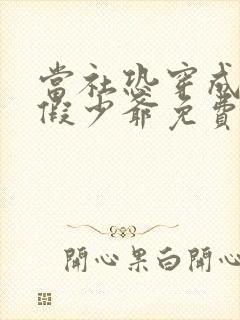 當社恐穿成
假少爺免費
開心果白開心